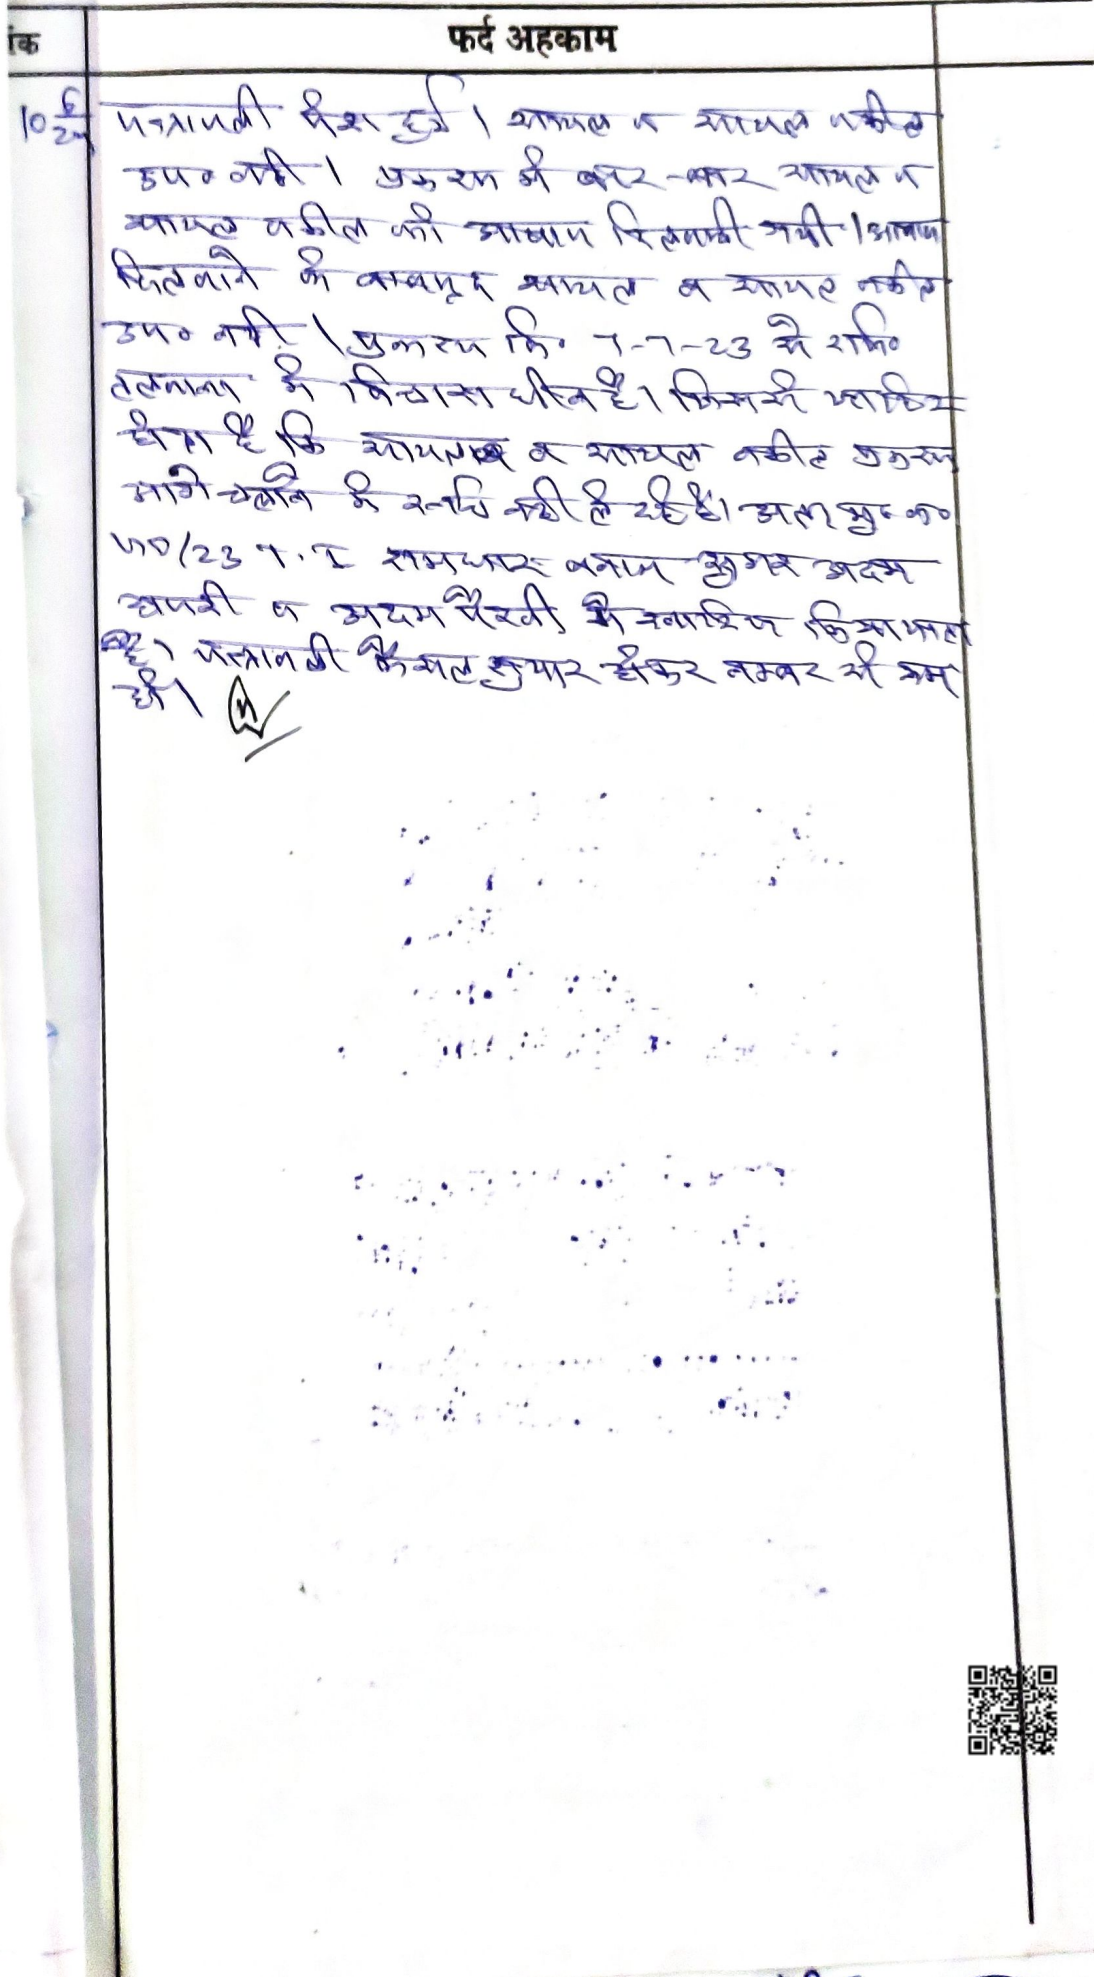 ांक फर्द अहकाम
10 6/24 पत्रावली पेश हुई। सायल व सायल वकील
उप० नही। प्रकरण मे बार-बार सायल व
सायल वकील को आवाज दिलवायी गयी। आवाज
दिलवाने के बावजूद सायल व सायल वकील
उप० नही। प्रकरण दि० 7-7-23 से
तलवाना मे विचाराधीन है। जिससे जाहिर
होता है कि सायल व सायल वकील प्रकरण
आगे चलाने मे रूचि नही ले रहे है। अतः मु० न०
/23 T.I रामधार बनाम अदम
हाजरी व अदम पैरवी मे खारिज किया जाता
है। पत्रावली फैसल शुमार होकर नम्बर से कम
हो।